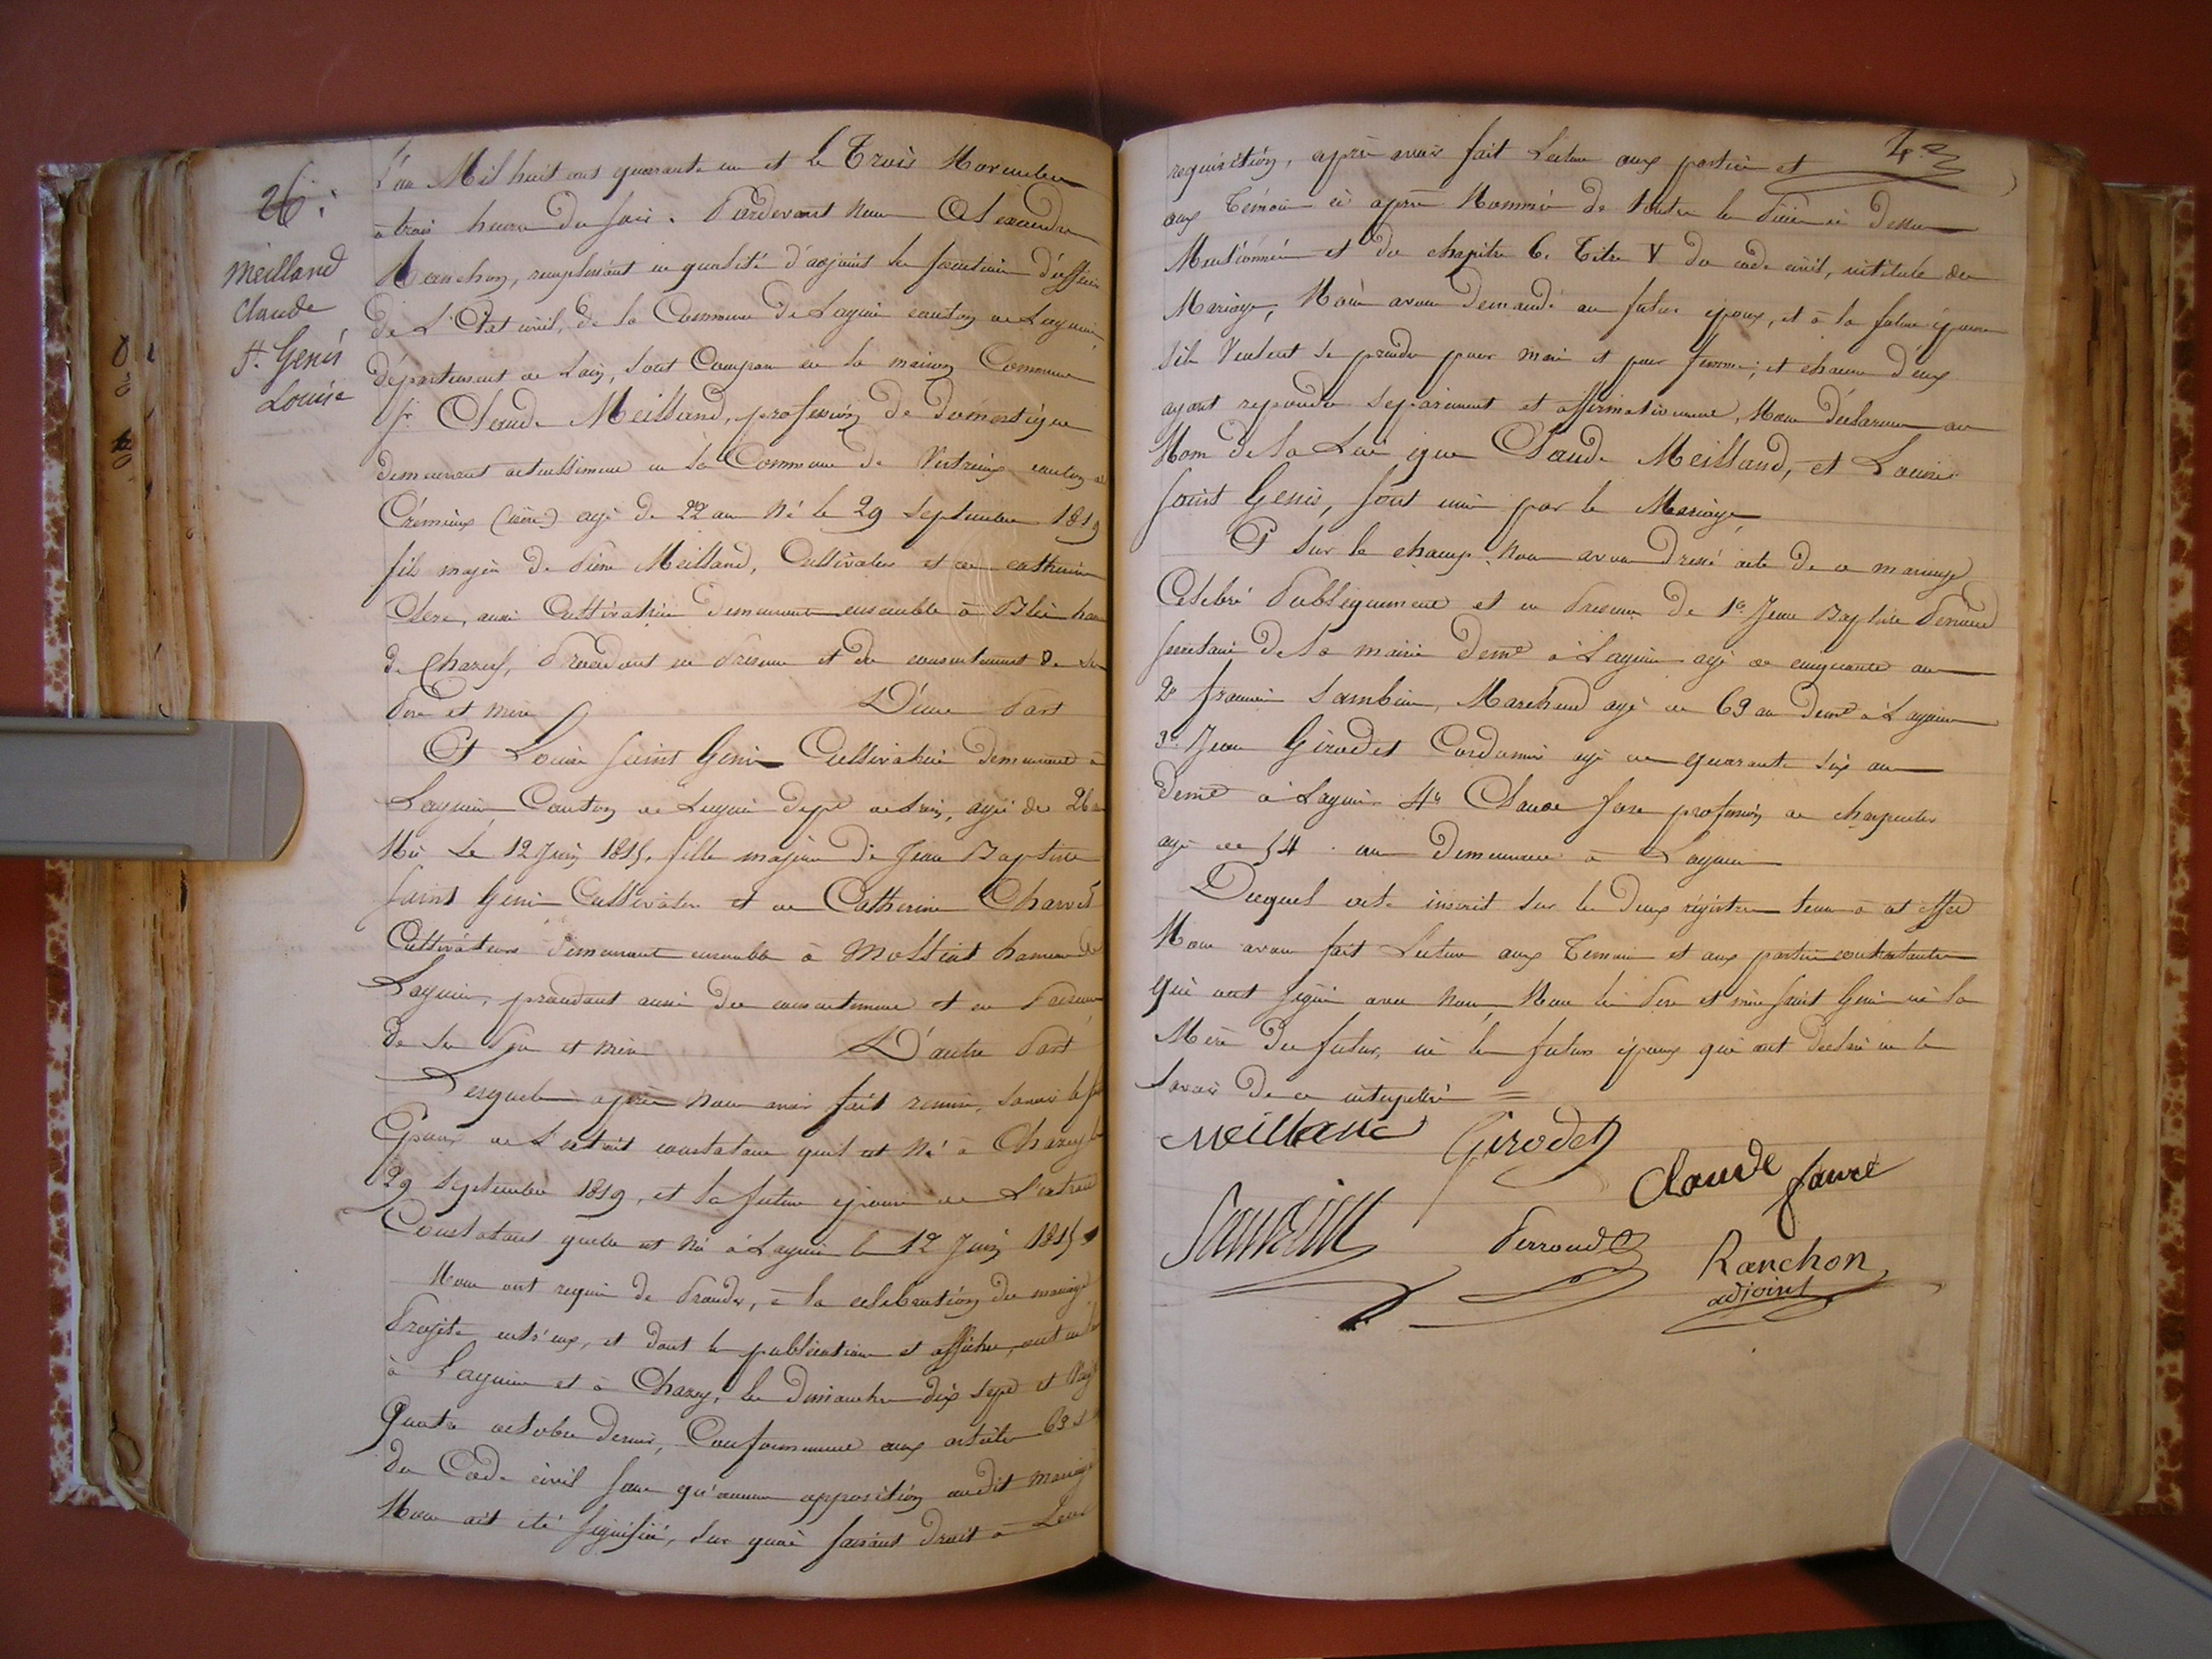 26.
Meilland
Claude
St. Genis
Louise
L'an Mil huit cent quarante un et le Trois Novembre
à trois heures du soir. Pardevant Nous Alexandre
Ranchon, remplissant en qualité d'adjoint les fonctions d'officier
de L'Etat civil, de la Commune de Lagnieu canton de Lagnieu
département de Lain, sont Comparu en la maison Commune
Sr. Claude Meilland, profession de domestique
demeurant actuellement en la Commune de Vertrieux canton de
Crémieux (isère) agé de 22 ans Né le 29 Septembre 1819
fils majeur de Pierre Meilland, Cultivateur et de catherine
aussi Cultivatrice demeurant ensemble à
de Chazey, Procédant en Présence et du consentement de ses
Père et mère D'une Part
Et Louise Saint Genis Cultivatrice demeurant à
Lagnieu, Canton de Lagnieu dept. de Lain, agée de 26 ans
Née Le 12 Juin 1815, fille majeure de Jean Baptiste
Saint Genis Cultivateur et de Catherine Charvet
Cultivateurs demeurant ensemble à Mollliat hameau de
Lagnieu, procédant aussi du consentement et en Présence
de ses Père et mère D'autre Part
Lesquels après Nous avoir fait remise, Savoir le futur
Epoux de L'extrait constatant qu'il est Né à Chazey le
29 Septembre 1819, et la future épouse de L'extrait
Constatant quelle est Née à Lagnieu le 12 Juin 1815
Nous ont requis de Procéder, à la celebration du mariage
Projeté entr'eux, et dont les publications et affiches, ont eu lieu
à Lagnieu et à Chazey, les dimanches dix Sept et Vingt
Quatre octobre dernier, Conformément aux articles 63
du Code civil sans qu'aucune opposition audit mariage
Nous ait été signifiée, Sur quoi faisant droit à Leur
42
requisition, après avoir fait Lecture aux parties et
aux Témoins ci après Nommés de toutes les Pièces ci dessus
Mentionnées et du chapitre 6. Titre V du code civil, intitulé du
Mariage, Nous avons demandé au futur époux, et à la future épouse
s'ils Veulent se prendre pour mari et pour femme; et chacun d'eux
ayant repondu Séparément et affirmativement, Nous déclarons au
Nom de la Loi que Claude Meilland, et Louise
Saint Genis, sont unis par le Mariage
Et Sur le champ Nous avons dressé acte de ce mariage
Célébré Publiquement et en Présence de 1o. Jean Baptiste Perroud
Secrétaire de la mairie demt. à Lagnieu agé de cinquante ans
2o francois Sambin, Marchand agé de 69 ans demt. à Lagnieu
3o. Jean Girodet Cordonnier agé de quarante six ans
demt. à Lagnieu 4o Claude fore profession de charpentier
agé de 54 ans demeurant à Lagnieu
Duquel acte inscrit Sur les deux régistres tenus à cet effet
Nous avons fait Lecture aux Temoins et aux parties contractantes
qui ont signé avec Nous, Non les Père et mère Saint Genis ni la
Mère du futur, ni les futurs époux qui ont declaré ne le
Savoir de ce interpellés =
Meilland Girodet Claude faure
Perroud Ranchon
adjoint